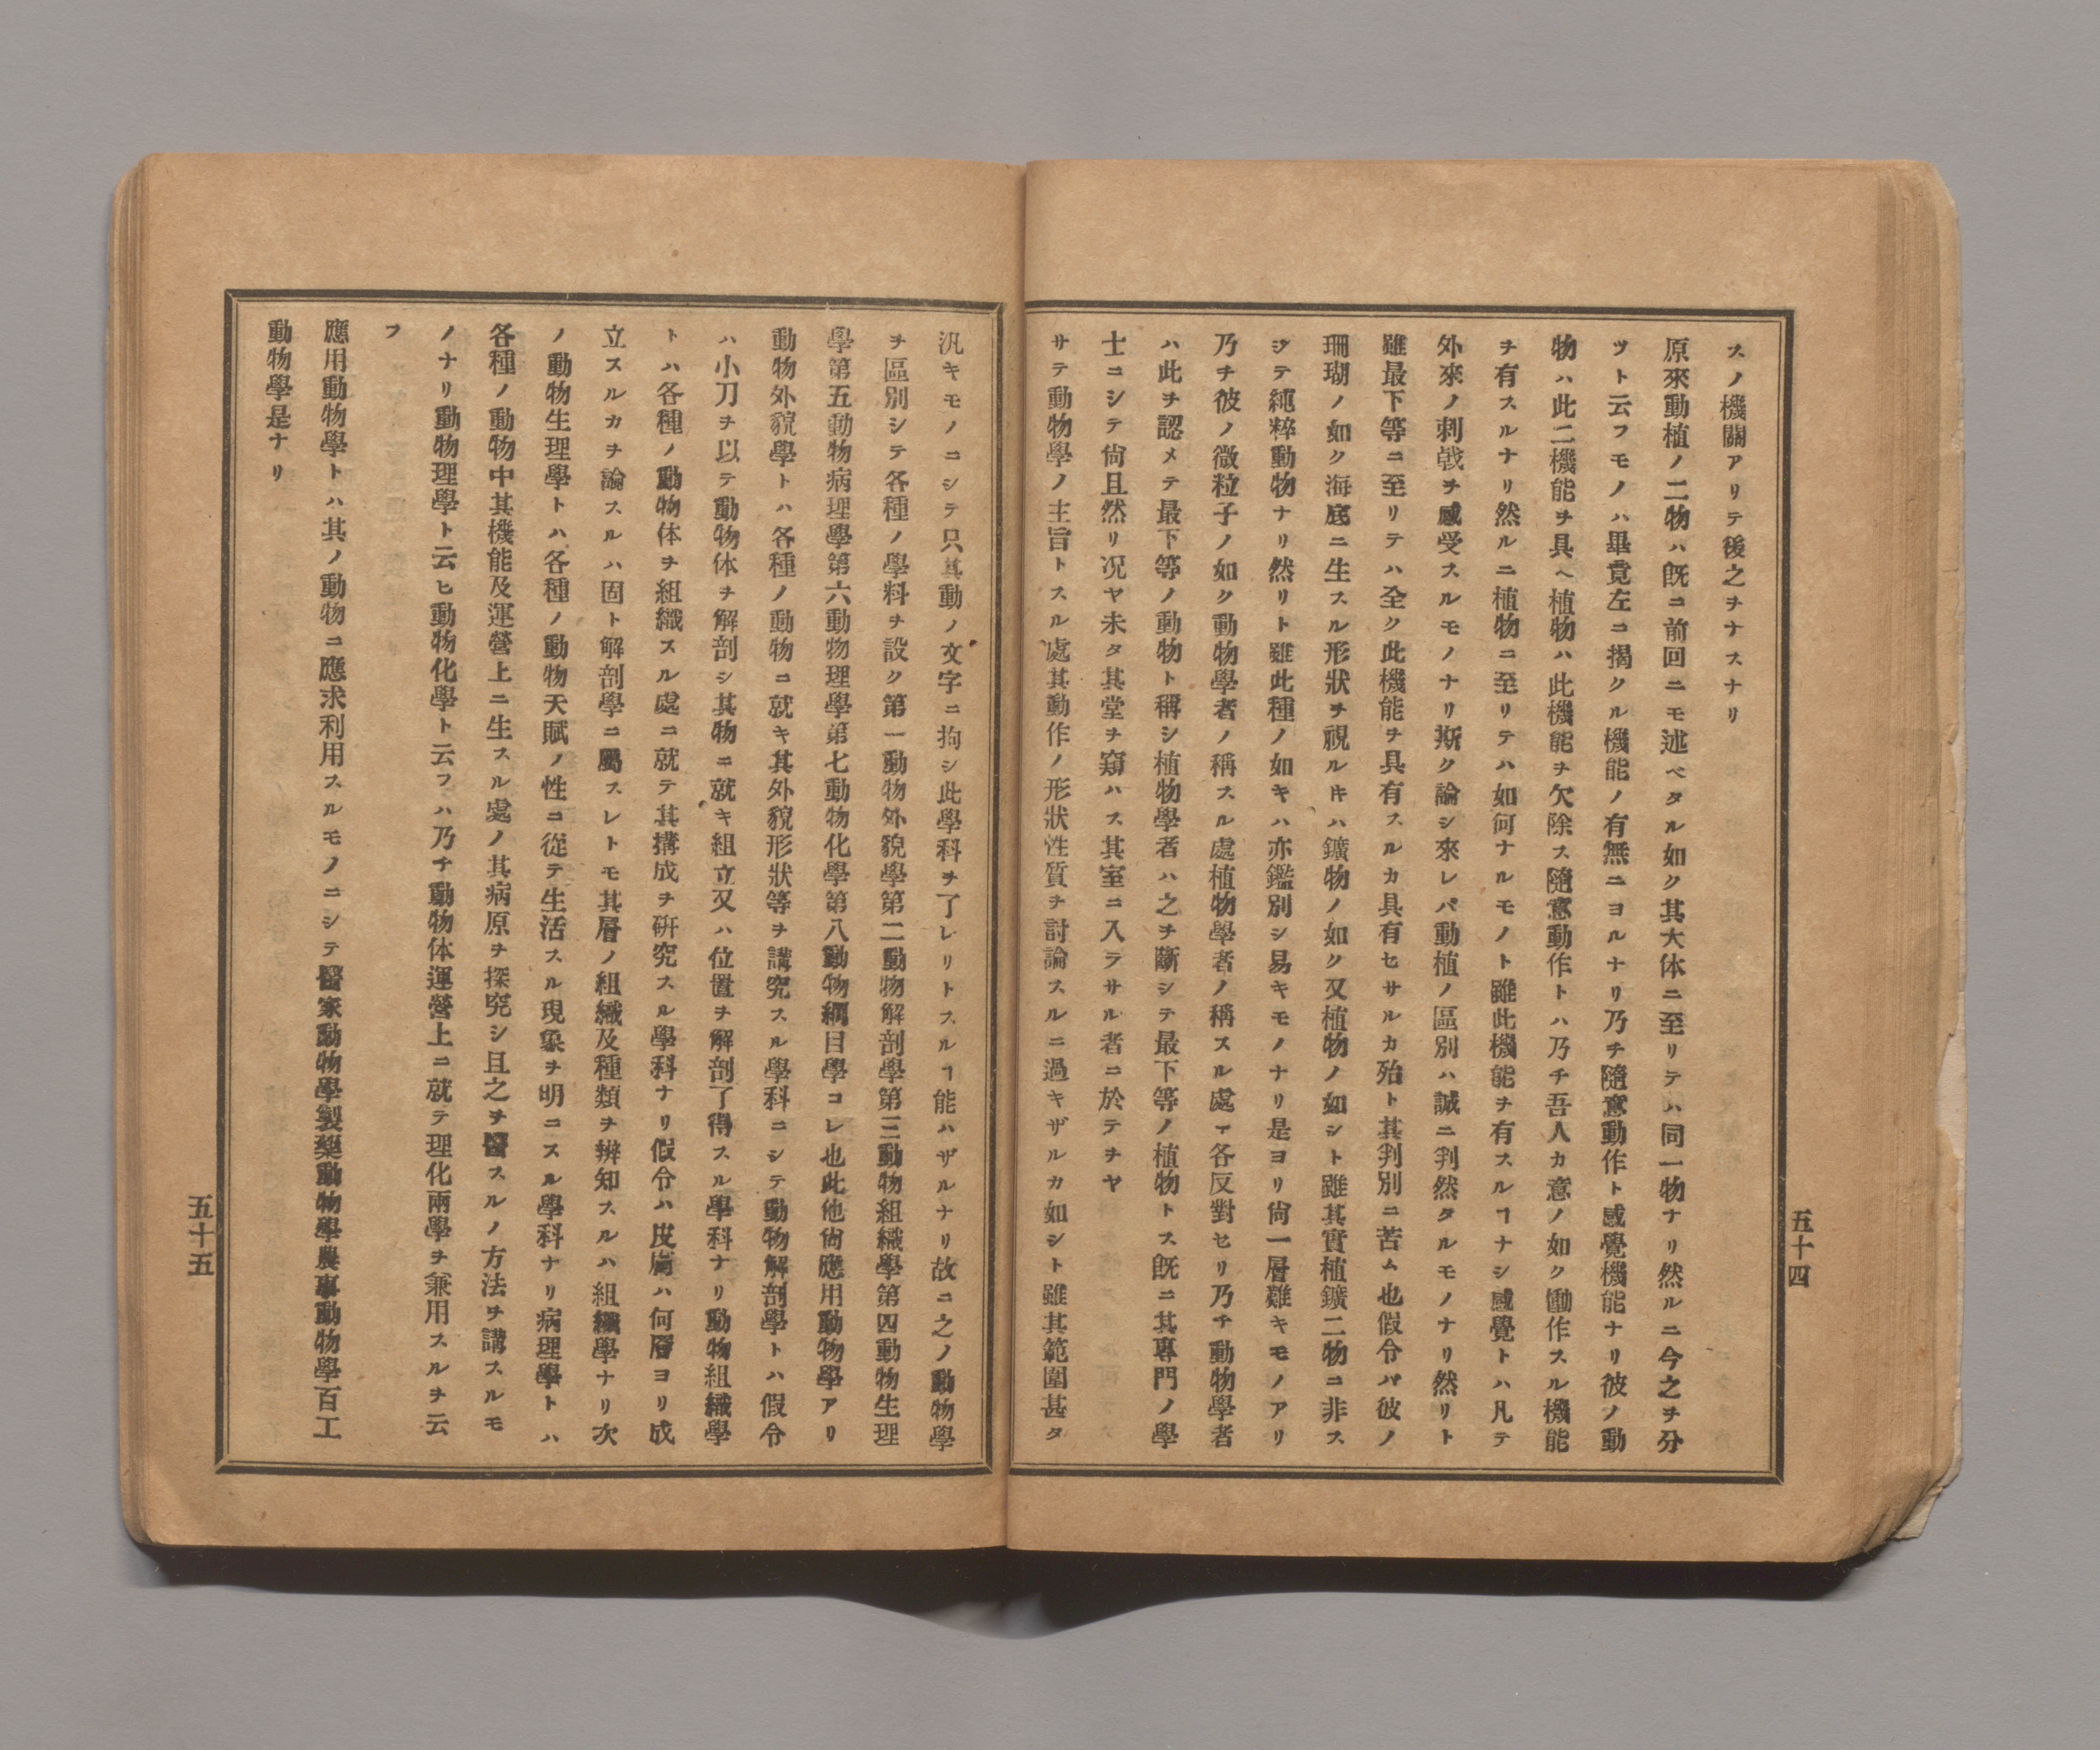 スノ機關アリテ後之ヲナスナリ
原來動植ノ二物ハ既ニ前回ニモ述ベタル如ク其大体ニ至リテハ同一物ナリ然ルニ今之ヲ分
ツト云フモノハ畢竟左ニ揭クル機能ノ有無ニヨルナリ乃チ隨意動作ト感覺機能ナリ彼ノ動
物ハ此二機能ヲ具ヘ植物ハ此機能ヲ欠除ス隨意動作トハ乃チ吾人カ意ノ如ク働作スル機能
ヲ有スルナリ然ルニ植物ニ至リテハ如何ナルモノト雖此機能ヲ有スルヿナシ感覺トハ凡テ
外來ノ刺戟ヲ感受スルモノナリ斯ク論シ來レバ動植ノ區別ハ誠ニ判然タルモノナリ然リト
雖最下等ニ至リテハ全ク此機能ヲ具有スルカ具有セサルカ殆ト其判別ニ苦ム也假令バ彼ノ
珊瑚ノ如ク海底ニ生スル形狀ヲ視ルヰハ鑛物ノ如ク又植物ノ如シト雖其實植鑛二物ニ非ス
シテ純粹動物ナリ然リト雖此種ノ如キハ亦鑑別シ易キモノナリ是ヨリ尙一層難キモノアリ
乃チ彼ノ微粒子ノ如ク動物學者ノ稱スル處植物學者ノ稱スル處ヿ各反對セリ乃チ動物學者
ハ此ヲ認メテ最下等ノ動物ト稱シ植物學者ハ之ヲ斷シテ最下等ノ植物トス既ニ其專門ノ學
士ニシテ尙且然リ况ヤ未タ其堂ヲ窺ハス其室ニ入ラサル者ニ於テヲヤ
サテ動物學ノ主旨トスル處其動作ノ形狀性質ヲ討論スルニ過キザルカ如シト雖其範圍甚タ
五十四
汎キモノニシテ只其動ノ文字ニ拘シ此學科ヲ了レリトスルヿ能ハザルナリ故ニ之ノ動物學
ヲ區別シテ各種ノ學料ヲ設ク第一動物外貌學第二動物解剖學第三動物組織學第四動物生理
學第五動物病理學第六動物理學第七動物化學第八動物綱目學コレ也此他尙應用動物學アリ
動物外貌學トハ各種ノ動物ニ就キ其外貌形狀等ヲ講究スル學科ニシテ動物解剖學トハ假令
ハ小刀ヲ以テ動物体ヲ解剖シ其物ニ就キ組立又ハ位置ヲ解剖了得スル學科ナリ動物組織學
トハ各種ノ動物体ヲ組織スル處ニ就テ其搆成ヲ硏究スル學科ナリ假令ハ皮膚ハ何層ヨリ成
立スルカヲ論スルハ固ト解剖學ニ屬スレトモ其層ノ組織及種類ヲ辨知スルハ組織學ナリ次
ノ動物生理學トハ各種ノ動物天賦ノ性ニ從テ生活スル現象ヲ明ニスル學科ナリ病理學トハ
各種ノ動物中其機能及運營上ニ生スル處ノ其病原ヲ探究シ且之ヲ醫スルノ方法ヲ講スルモ
ノナリ動物理學ト云ヒ動物化學ト云フハ乃チ動物体運營上ニ就テ理化兩學ヲ兼用スルヲ云
フ
應用動物學トハ其ノ動物ニ應求利用スルモノニシテ醫家動物學製藥動物學農事動物學百工
動物學是ナリ
五十五